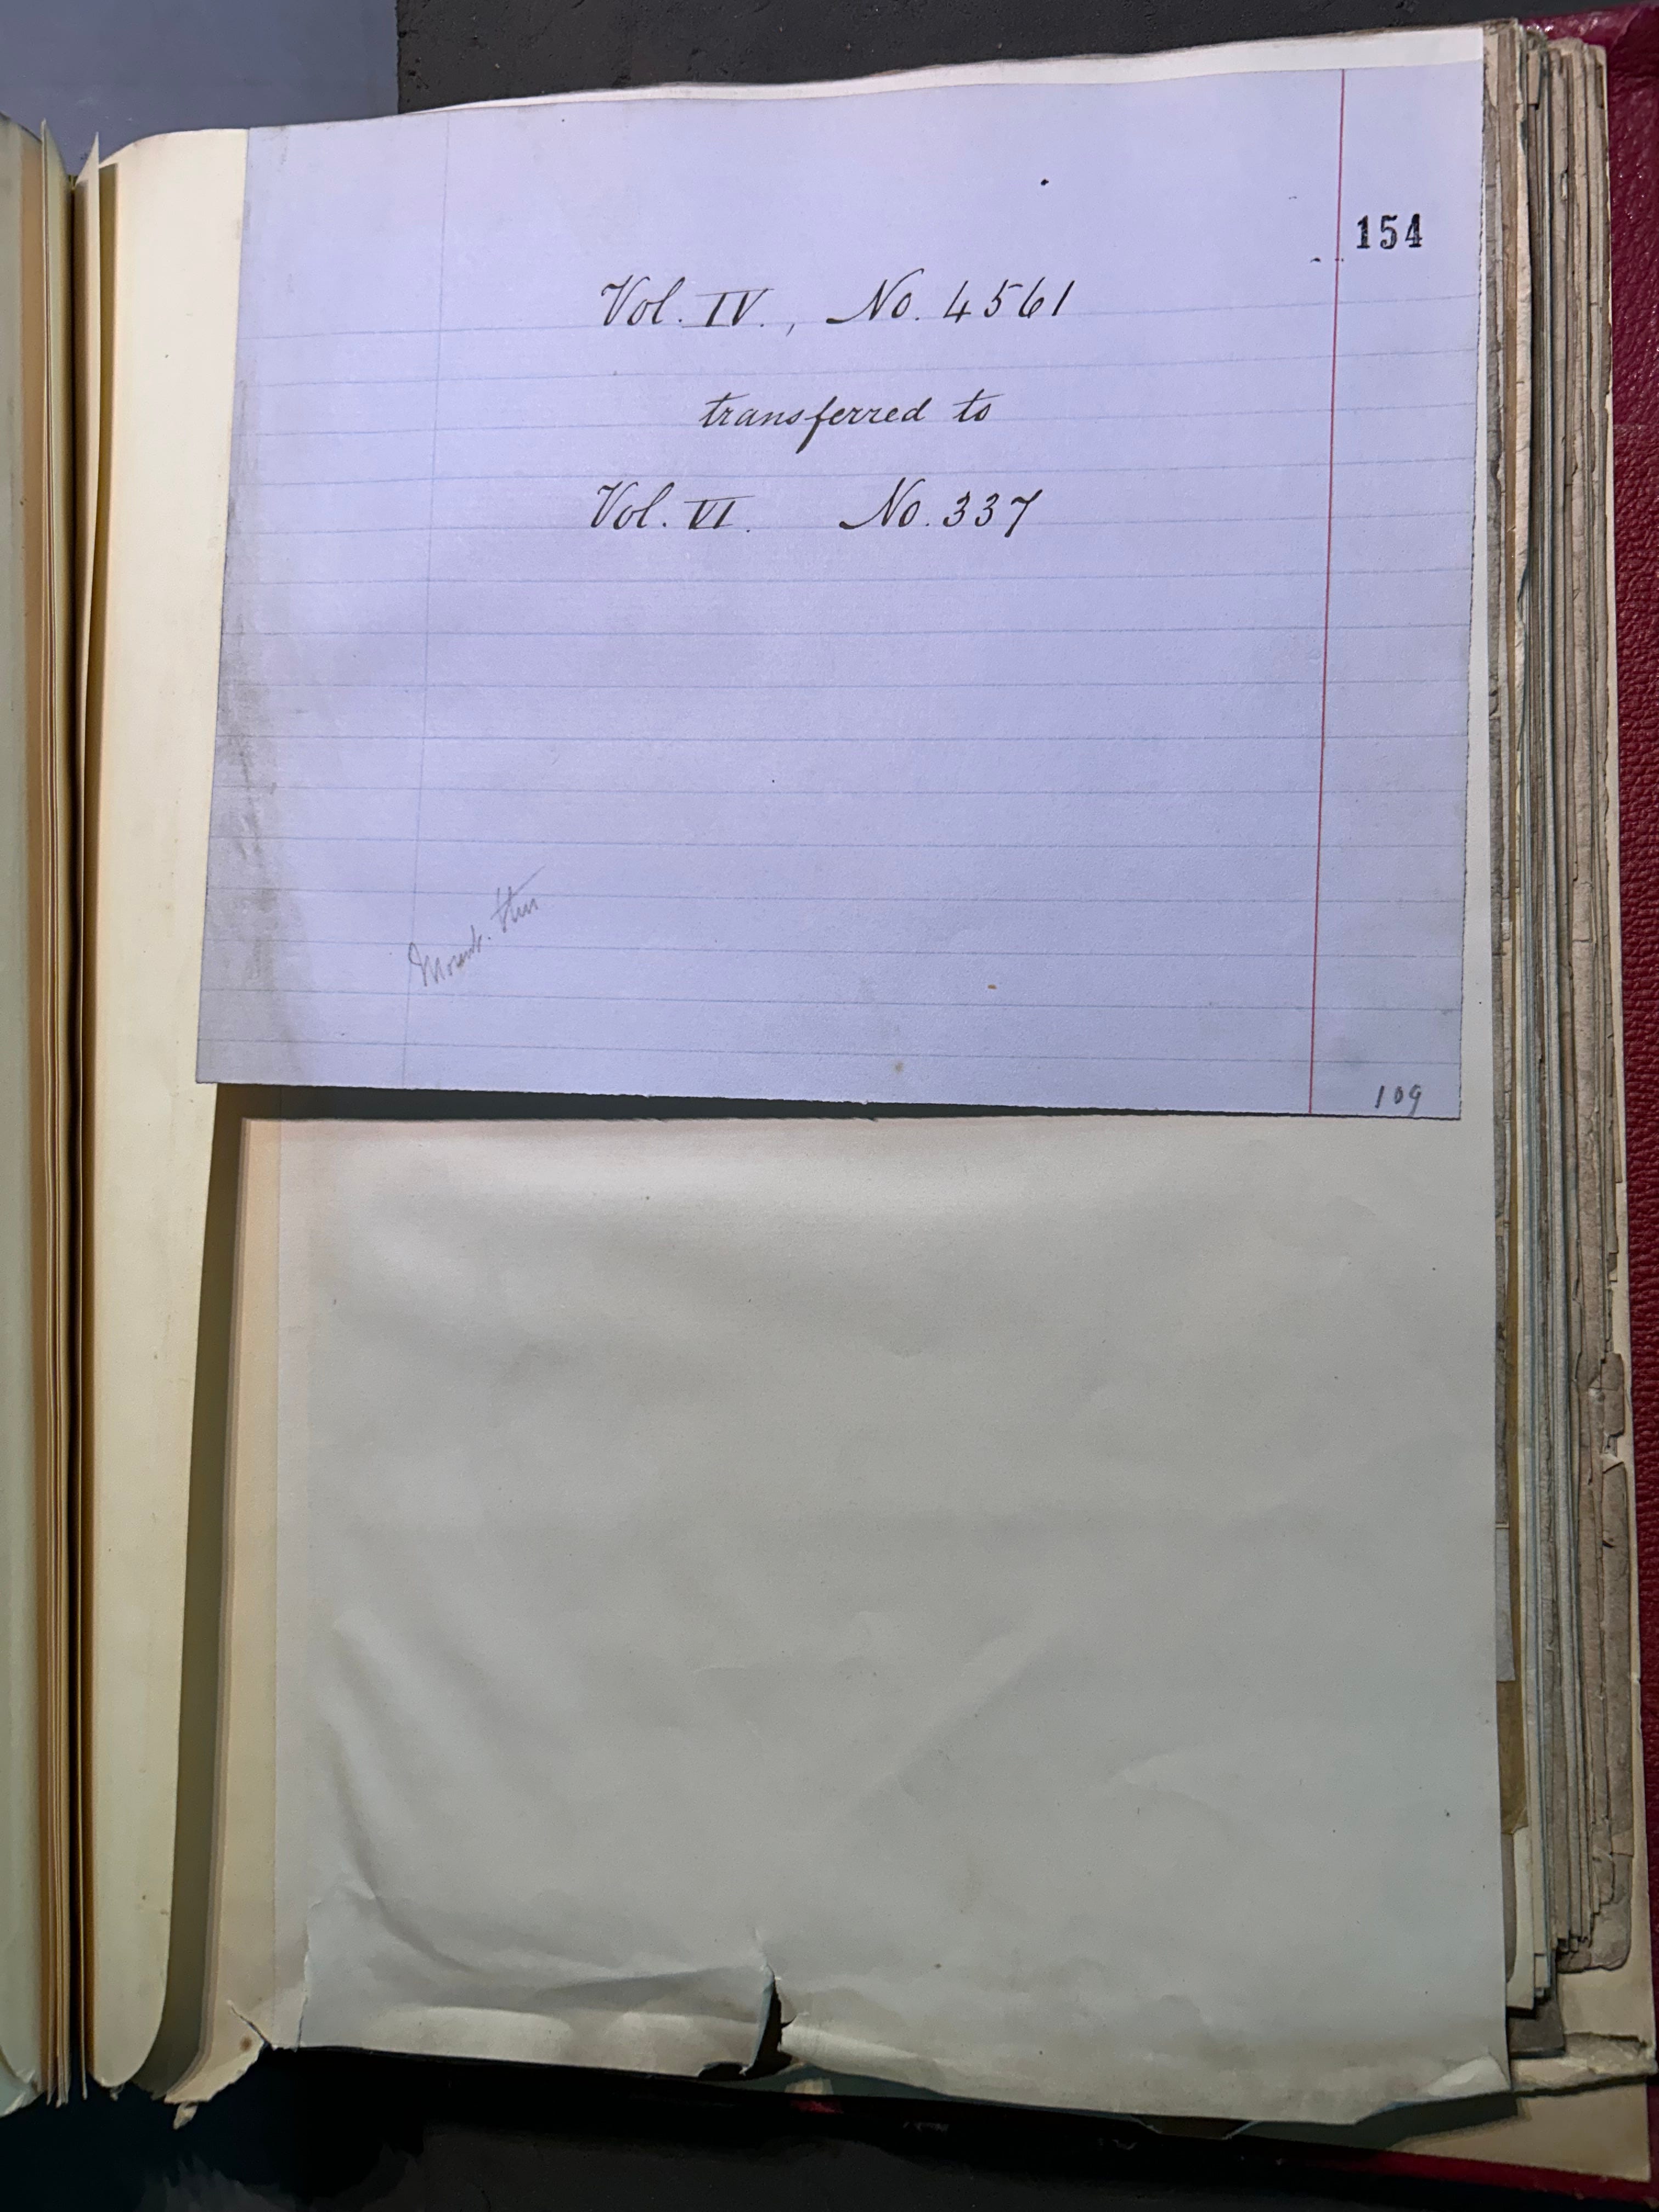 154
Vol. IV., No. 4561
transferred to
Vol. VI. No. 337
109